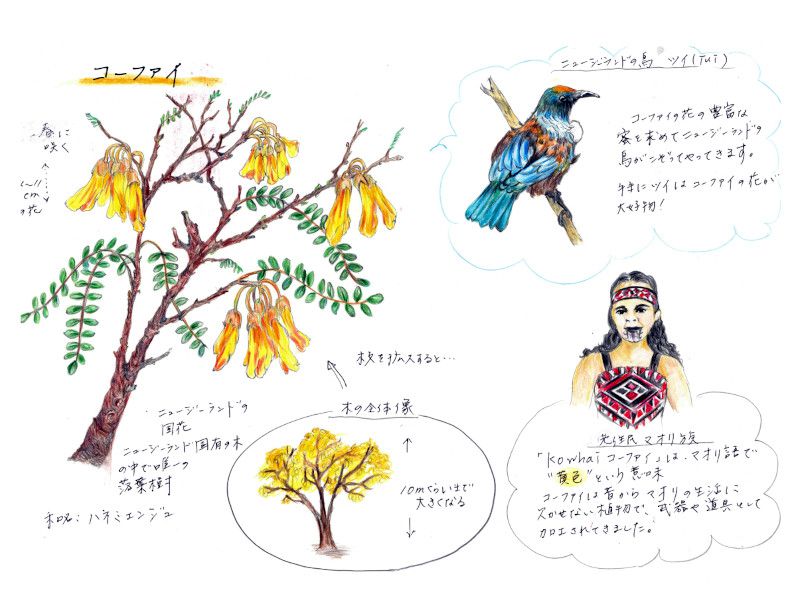 コーファイ
春に
咲く
cm
の花
ニュージーランドの
国花
ニュージーランド固有の木
の中で唯一の
落葉樹
和名：ハネミエンジュ
枝を拡大すると…
木の全体像
10mくらいまで
大きくなる
ニュージーランドの鳥 ツイ(Tui)
コーファイの花の豊富な
蜜を求めてニュージーランドの
鳥がこぞってやってきます。
特にツイはコーファイの花が
大好物！
先住民 マオリ族
「Kowhai コーファイ」は、マオリ語で
"黄色"という意味
コーファイは昔からマオリの生活に
欠かせない植物で、武器や道具として
加工されてきました。